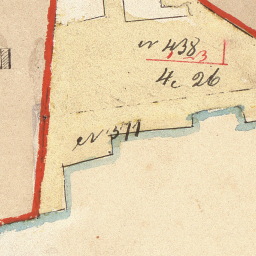 nr 438
123
4c 26
nr 511